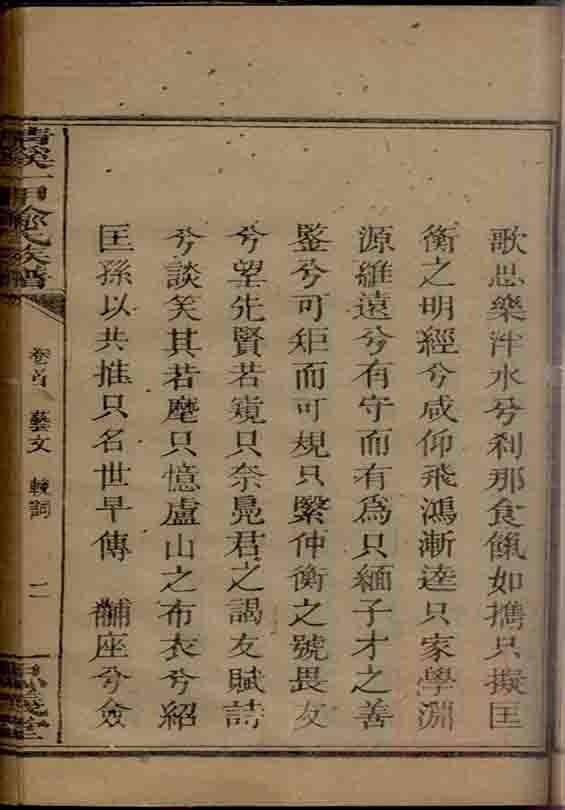 歌思樂泮水兮刹那食餼如攜只擬匡
衡之明經兮咸仰飛鴻漸逵只家學淵
源維遠兮有守而有為只緬子才之善
鑒兮可矩而可規只繄仲衡之號畏友
兮望先賢若窺只奈晁君之謁友賦詩
兮談笑其若塵只憶廬山之布衣兮紹
匡孫以共推只名世早傳 黼座兮僉
清溪一甲余氏族譜
卷首 藝文 輓詞 二